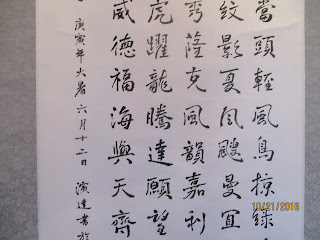 當頭輕風鳥掠綠
紋影夏風颼曼宜
秀薩克風韻嘉利
虎躍龍騰達願望
威德福海與天齊
庚寅年大暑六月十二日 演達書於
10/21/2016